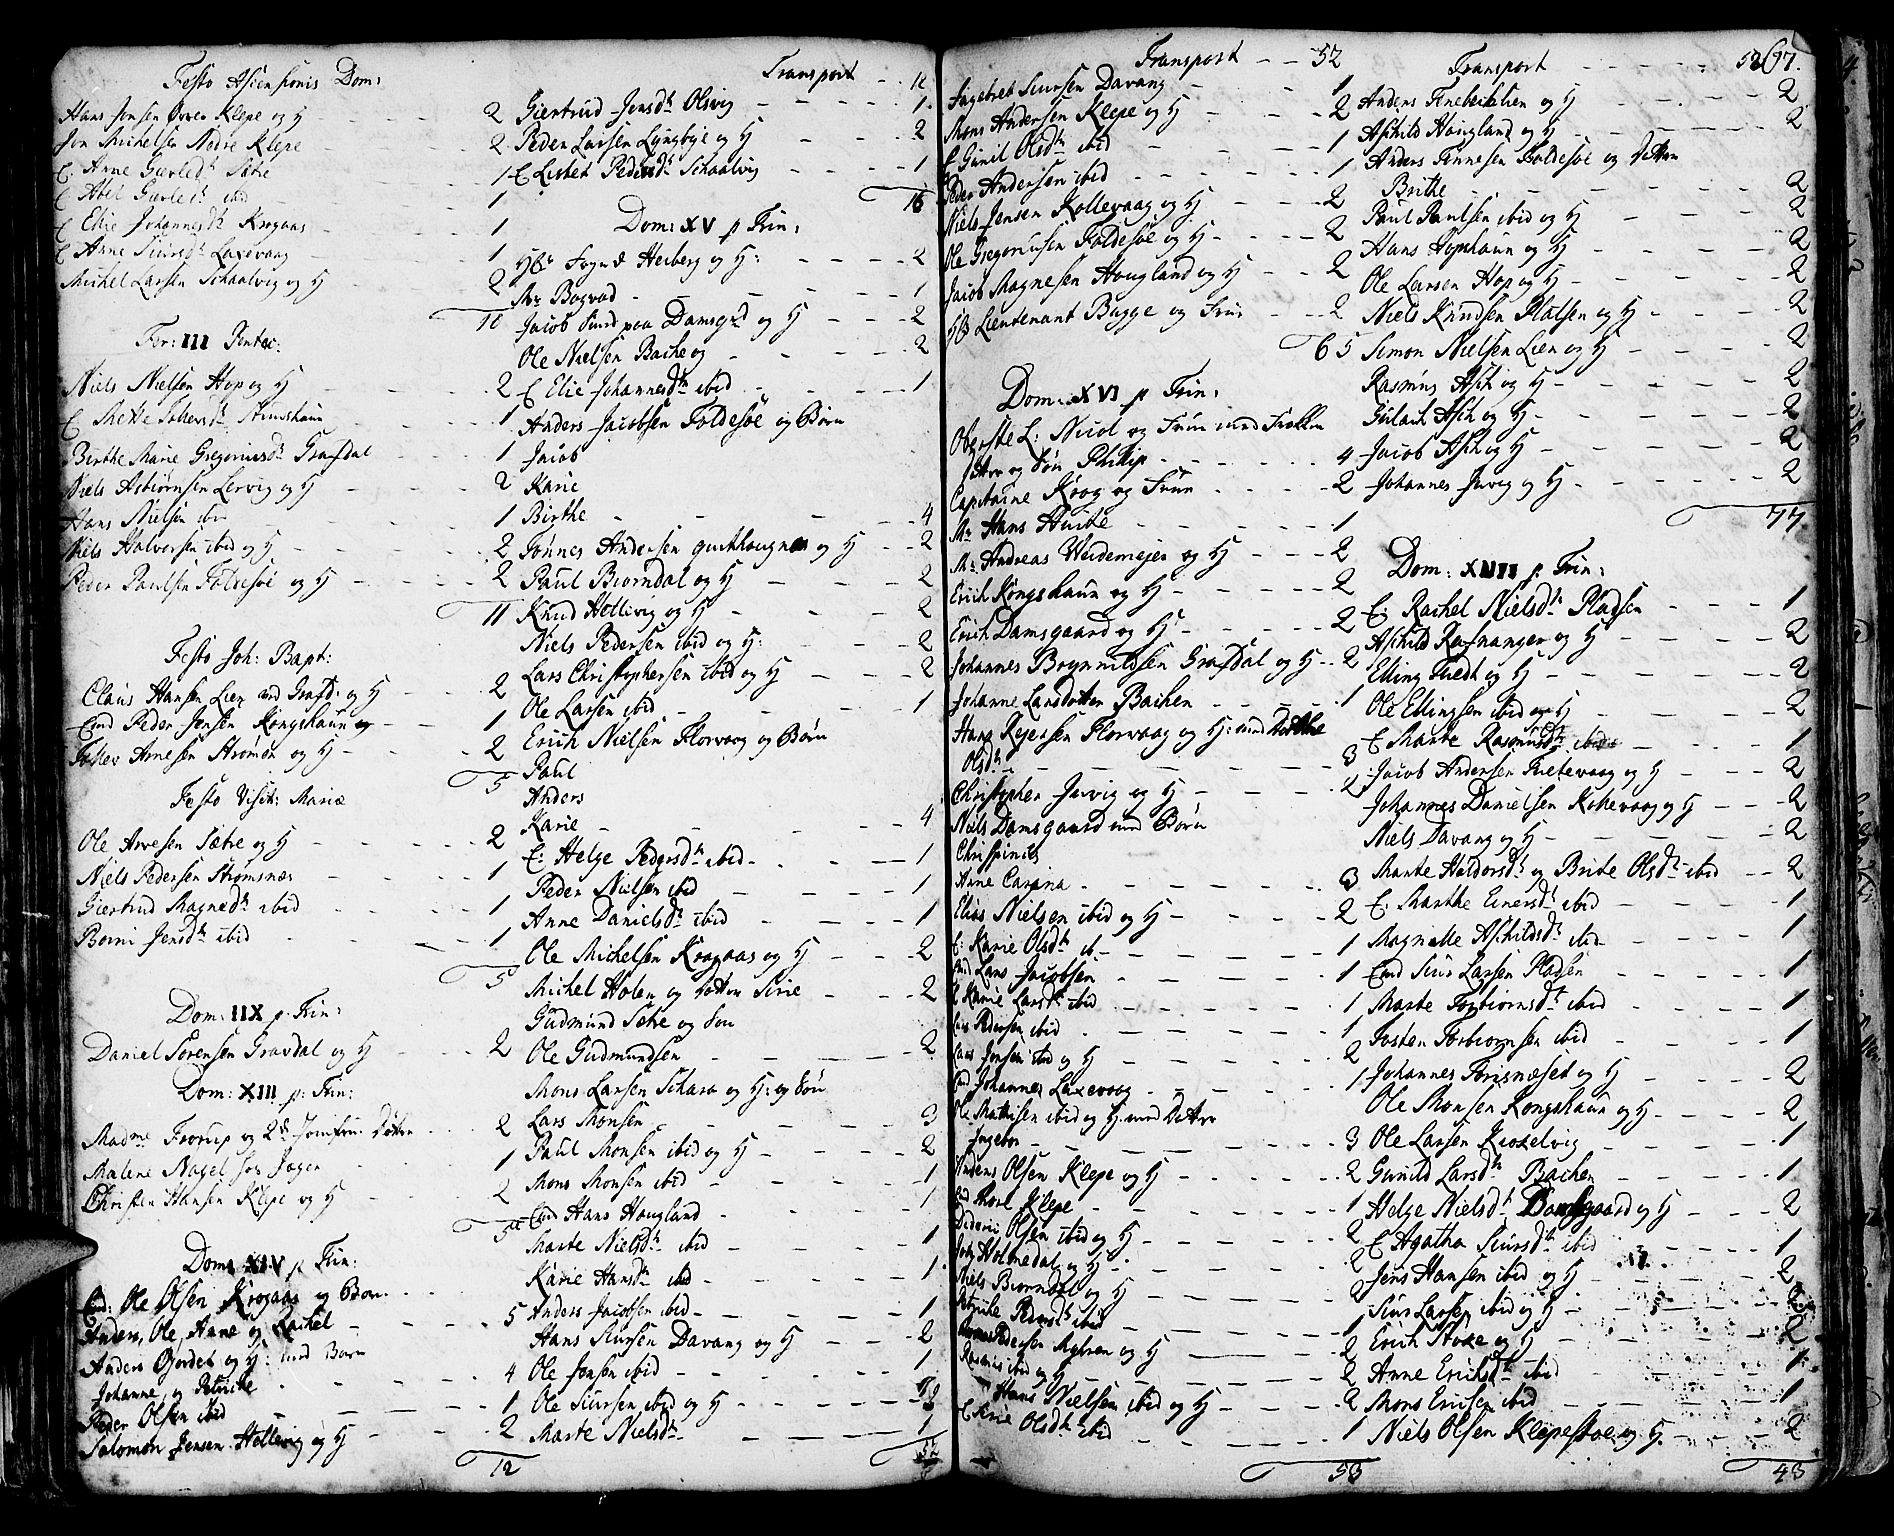 Festo Ascensionis Dom:
Hans Jensen Øvre Klepe og H - - - 2
Jon Michelsen Nedre Klepe - - 2
E. Anne Gierleds Sætre - - 1
E Abel Gierleds ibid - - 1
E Elie Johannesd. Krogaas - - 1
E Anne Siursd. Laxevaag - - 1
Michel Larsen Schaalvig og H - - 2
10
Fer: III Pentec:
Niels Nielsen Hop og H - - 2
E Mette - - 1
Birthe Marie Gregoriusd. Grafdal - - 1
Niels Asbiørnsen Lervig og H - - 2
Hans Nielsen ibid - - 1
Niels Halversen ibid og H - - 2
Peder Paulsen Foldesøe og H - - 2
11
Festo Joh: Bapt:
Claus Hansen Lien ved Grafd. og H - - 2
Peder Jensen Kongshaun - - 1
Arnesen Strømøn og H - - 2
5
Festo Visit: Mariæ
Ole Arnesen Sætre og H - - 2
Niels Pedersen Strømsnæs - - 1
Giertrud Magned. ibid - - 1
Børni Jensd. ibid - - 1
5
Dom: IIX p. Trin:
Daniel Sørensen Gravdal og H - - 2
Dom: XIII p: Trin:
Madme Frorup og 2de Jomfru Døttre - - 2
Malene Nagel - - 1
Christen Hansen Klepe og H - - 2
5
Dom: XIV p Trin:
Ole Olsen Krogaas og Børn
Anders, Ole, Anne og Rachel - - 5
Anders Gjordet og H: med Børn
Johanne og Petriche - - 4
Peder Olsen ibid - - 1
Salomon Jensen Hellevig og H - - 2
12
Transport - - 12
Giertrud Jensd. Olsvig - - 1
Peder Larsen Lyngbye og H - - 2
E Lisbet Pedersd. Schaalvig - - 1
16
Dom: XV p Trin:
Hr. Fogned Herberg og H: - - 2
Mr. Bogvad - - 1
Jacob Sund paa Damsgrd og H - - 2
Ole Nielsen Bache og - - 2
E Elie Johannesd. ibid - - 1
Anders Jacobsen Foldesøe og Børn
Jacob
Karie
Birthe - - 4
Tønnes Andersen og H - - 2
Paul Biørndal og H - - 2
Knud Hellivig og H - - 2
Niels Pedersen ibid og H: - - 2
Lars Christophersen ibid og H - - 2
Ole Larsen ibid - - 1
Erich Nielsen Florvaag og Børn
Paul
Anders
Karie - - 4
E: Helge Pedersd. ibid - - 1
Peder Nielsen ibid - - 1
Anne Danielsd. ibid - - 1
Ole Michelsen Kragaas og H - - 2
Michel Holen og datter Sirie - - 2
Gudmund Sætre og Søn
Ole Gudmundsen - - 2
Mons Larsen Schara og H: og Søn
Lars Monsen - - 3
Paul Monsen ibid og H - - 2
Mons Monsen ibid - - 1
Hans Hougland - - 1
Marte Nielsd. ibid - - 1
Karie Hansd. ibid - - 1
Anders Jacobsen ibid - - 1
Hans Siursen Davang og H - - 2
Ole Jensen ibid - - 1
Ole Siursen ibid og H - - 2
Marte Nielsd. - - 1
52
Transport - - 52
Ingebret Siursen Davang - - 1
Mons Andersen Klepe og H - - 2
E Gunil Olsd. ibid - - 1
Peder Andersen ibid - - 1
Niels Jensen Kollevaag og H - - 2
Ole Gregoriusen Foldesøe og H - - 2
Jacob Magnesen Hougland og H - - 2
Hr Lieutenant Bugge og Frue - - 2
65
Dom: XVI p Trin:
Oberste L: Nicol og Frue med Frøken
datter og Søn Philip - - 4
Capitaine Krog og Frue - - 2
Mr Hans Huite - - 1
Mr. Andreas Heidemejer og H - - 2
Erich Kongshaun og H - - 2
Erich Damsgaard og H - - 2
Johannes Grafdal og H - - 2
Johanne Larsdotter Bachen - - 1
Hans Rejersen Florvaag og H: med
Olsd. - - 3
Christopher Jervig og H - - 2
Niels Damsgaard med Børn
Chrispinus
Anne Carina - - 3
Elias Nielsen ibid og H - - 2
E: Karie Olsd. ib. - - 1
Lars Jacobsen - - 1
E Karie Larsd. ibid - - 1
Lars Pedersen ibid - - 1
Lars Jensen ibid og H - - 2
Johannes Laxevaag - - 1
Ole Mathisen ibid og H med Datter
Ingebor - - 3
Anders Olsen Klepe og H - - 2
Klepe - - 1
Dideric Olsen ibid og H - - 2
Holmedal og H - - 2
Niels Biørndal og H - - 2
Petriche Pedersd. ibid - - 1
Pedersen og H - - 2
Rasmus ibid og H - - 2
Hans Nielsen ibid og H - - 2
E Karie Olsd. ibid - - 1
53
Transport - - 53 67.
Anders Tinebeistien og H - - 2
Aschild Hougland og H - - 2
Anders Tennesen Foldesøe og Datter
Brithe - - 2
Paul Paulsen ibid og H - - 2
Hans Hopshaun og H - - 2
Ole Larsen Hop og H - - 2
Niels Knudsen Platsen og H - - 2
Simon Nielsen Lien og H - - 2
Rasmus Ask og H - - 2
Gulach Ask og H - - 2
Jacob Ask og H - - 2
Johannes Jervig og H - - 2
77
Dom: XVII p: Trin:
E: Rachel Nielsd. Pladsen - - 1
Aschild Rafnanger og H - - 2
Elling Tvedt og H - - 2
Ole Ellingsen ibid og H - - 2
E Marte Rasmusd. ibid - - 1
Jacob Andersen Tuetevaag og H - - 2
Johannes Danielsen Kollevaag og H - - 2
Niels Davang og H - - 2
Marte Haldorsd. og Brite Olsd. ibid - - 2
E: Marthe Einersd. ibid - - 1
Magnelle Aschildsd. ibid - - 1
Siur Larsen Pladsen - - 1
Marte Torbiørnsd. ibid - - 1
Josten Torbiørnsen ibid - - 1
Johannes Torisnæset og H - - 2
Ole Monsen Kongshaun og H - - 2
Ole Larsen Kioxelvig - - 1
Gunild Larsd. Bachen - - 1
Helge Nielsd. Damsgaard og H - - 2
E Agatha Siursd. ibid - - 1
Jens Hansen ibid og H - - 2
Siur Larsen ibid og H - - 2
Erich Store og H - - 2
Anne Erichsd. ibid - - 1
Mons Ericsen ibid - - 1
Niels Olsen Klepestøe og H. - - 2
43